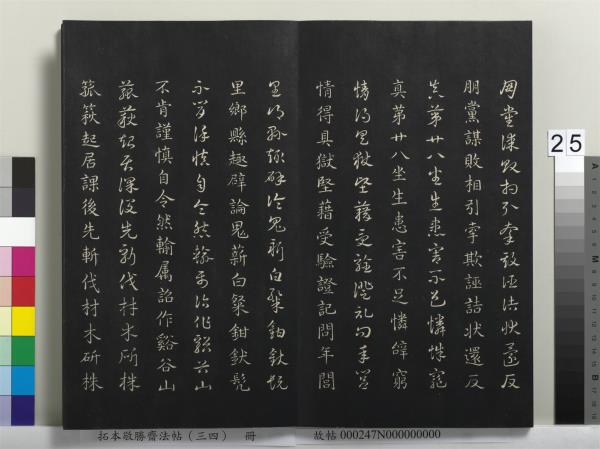 朋黨謀敗相引牽欺誣詰狀還反
朋黨謀敗相引牽欺誣詰状還反
真第廿八坐生患害不足憐辭窮
真第廿八坐生患害不足憐辭窮
情得具獄堅藉受驗證記問年閭
情得具獄堅藉受驗證記問年閭
里鄉縣趣辟論鬼薪白粲鉗釱髡
里鄉縣趣辟論鬼薪白粲鉗釱髡
不肯謹慎自令然輸屬詔作谿谷山
不肯謹慎自令然輸属詔作谿谷山
箛篍起居課後先斬伐材木斫株
箛篍起居課後先斬伐材木斫株
25
拓本敬勝齋法帖（三四） 冊 故帖 000247N000000000